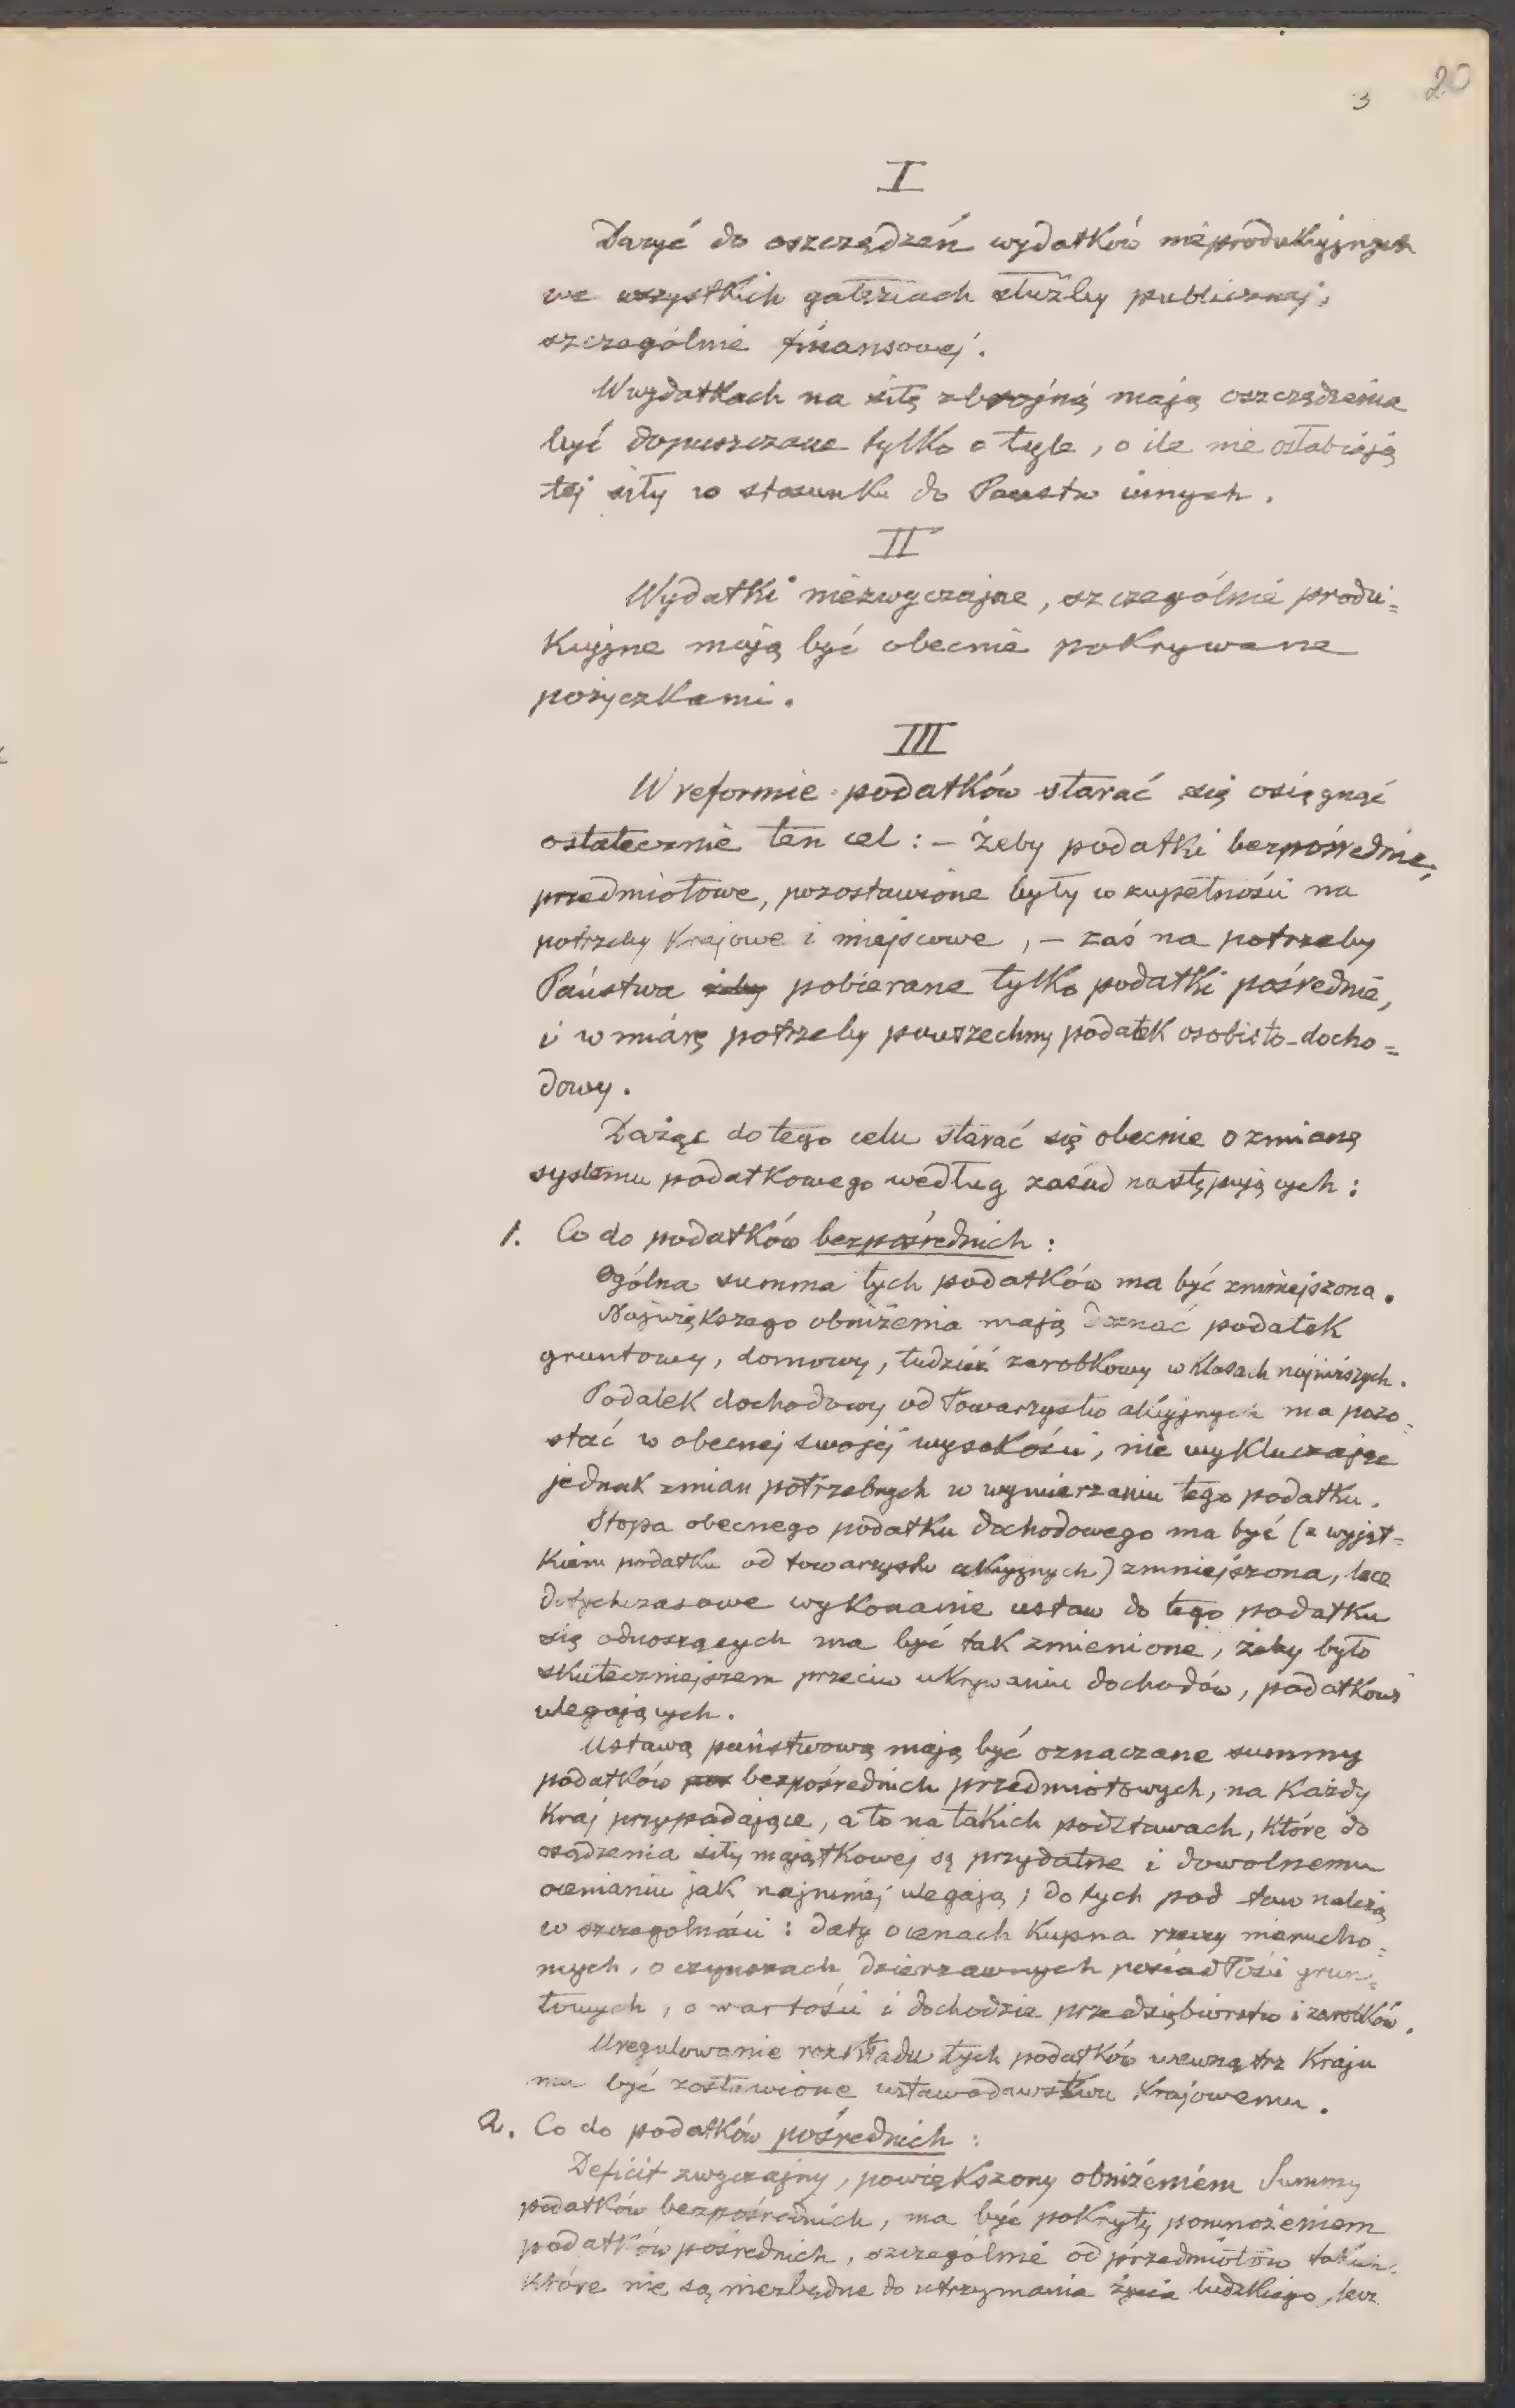 3 20
I
Dążyć do oszczędzeń wydatków nieprodukcyjnych
we wszystkich gałęziach służby publicznej,
szczególnie finansowej.
W wydatkach na siłę zbrojną mają oszczędzenia
być dopuszczane tylko o tyle, o ile nie osłabiają
tej siły w stosunku do Państw innych.
II
Wydatki niezwyczajne, szczególnie produ=
kcyjne mają być obecnie pokrywane
pożyczkami.
III
W reformie podatków starać się osięgnąć
ostatecznie ten cel: – żeby podatki bezpośrednie,
przedmiotowe, pozostawione były w zupełności na
potrzeby krajowe i miejscowe, – zaś na potrzeby
Państwa żeby pobierane tylko podatki pośrednie,
i w miarę potrzeby powszechny podatek osobisto-docho=
dowy.
Dążąc do tego celu starać się obecnie o zmianę
systemu podatkowego według zasad następujących:
1. Co do podatków bezpośrednich:
Ogólna summa tych podatków ma być zmniejszona.
Największego obniżenia mają doznać podatek
gruntowy, domowy, tudzież zarobkowy w klasach najniższych.
Podatek dochodowy od Towarzystw akcyjnych ma pozo=
stać w obecnej swojej wysokości, nie wykluczając
jednak zmian potrzebnych w wymierzaniu tego podatku.
Stopa obecnego podatku dochodowego ma być (z wyjąt=
kiem podatku od towarzystw akcyjnych) zmniejszona, lecz
dotychczasowe wykonanie ustaw do tego podatku
się odnoszących ma być tak zmienione, żeby było
skuteczniejszem przeciw ukrywaniu dochodów, podatkowi
ulegających.
Ustawą państwową mają być oznaczane summy
podatków pos bezpośrednich przedmiotowych, na każdy
kraj przypadające, a to na takich podstawach, które do
osądzenia siły majątkowej są przydatne i dowolnemu
ocenianiu jak najmniej ulegają; do tych pod staw należą
w szczególności: daty o cenach kupna rzeczy nierucho=
mych, o czynszach dzierzawnych posiadłości grun=
towych, o wartości i dochodzie przedsiębiorstw i zarobków.
Uregulowanie rozkładu tych podatków wewnątrz kraju
ma być zostawione ustawodawstwu krajowemu.
2. Co do podatków pośrednich:
Deficit zwyczajny, powiększony obniżeniem Summy
podatków bezpośrednich, ma być pokryty pomnożeniem
podatków pośrednich, szczególnie od przedmiotów takich,
które nie są niezbędne do utrzymania życia ludzkiego, lecz